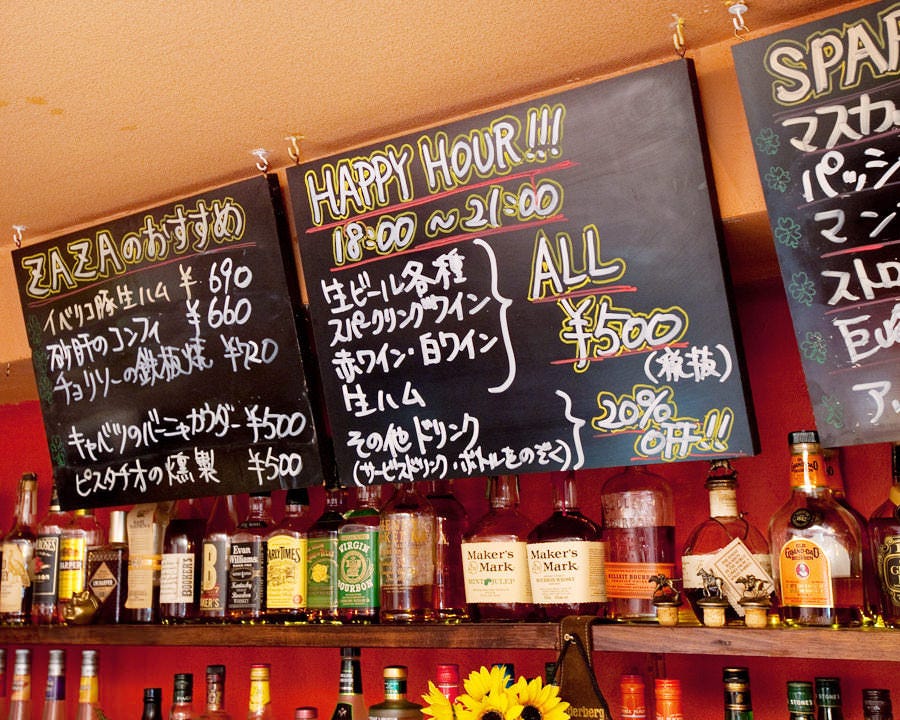 ZAZAのおすすめ
イベリコ豚生ハム ¥690
砂肝のコンフィ ¥660
チョリソーの鉄板焼 ¥720
キャベツのバーニャカウダー ¥500
ピスタチオの燻製 ¥500
HAPPY HOUR!!!
18:00 ~ 21:00
生ビール各種
スパークリングワイン
赤ワイン・白ワイン
生ハム
ALL
¥500
(税抜)
その他ドリンク
(サービスドリンク・ボトルをのぞく)
20%
OFF!!
SPAR
マスカ
パッシ
マン
ストロ
アッ
HARPER
Evan Williams
EARLY TIMES
VIRGIN
BOURBON
Maker's
Mark
MINT JULEP
Maker's
Mark
BULLEIT BOURBON
OLD
GRAND-DAD